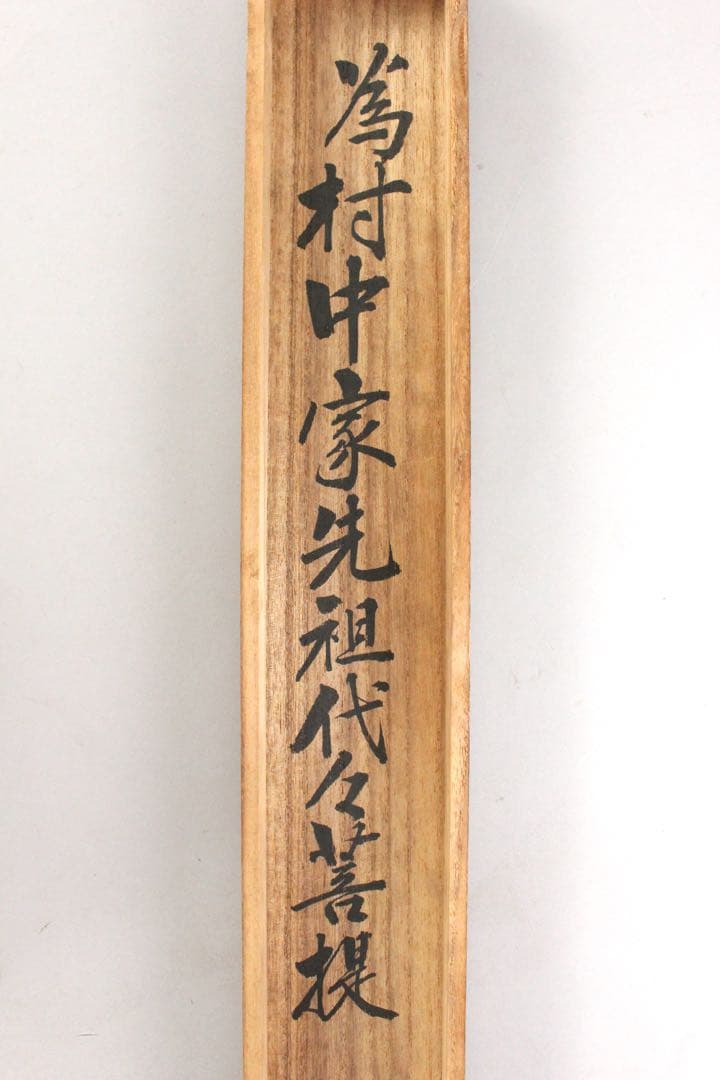 為村中家先祖代々菩提